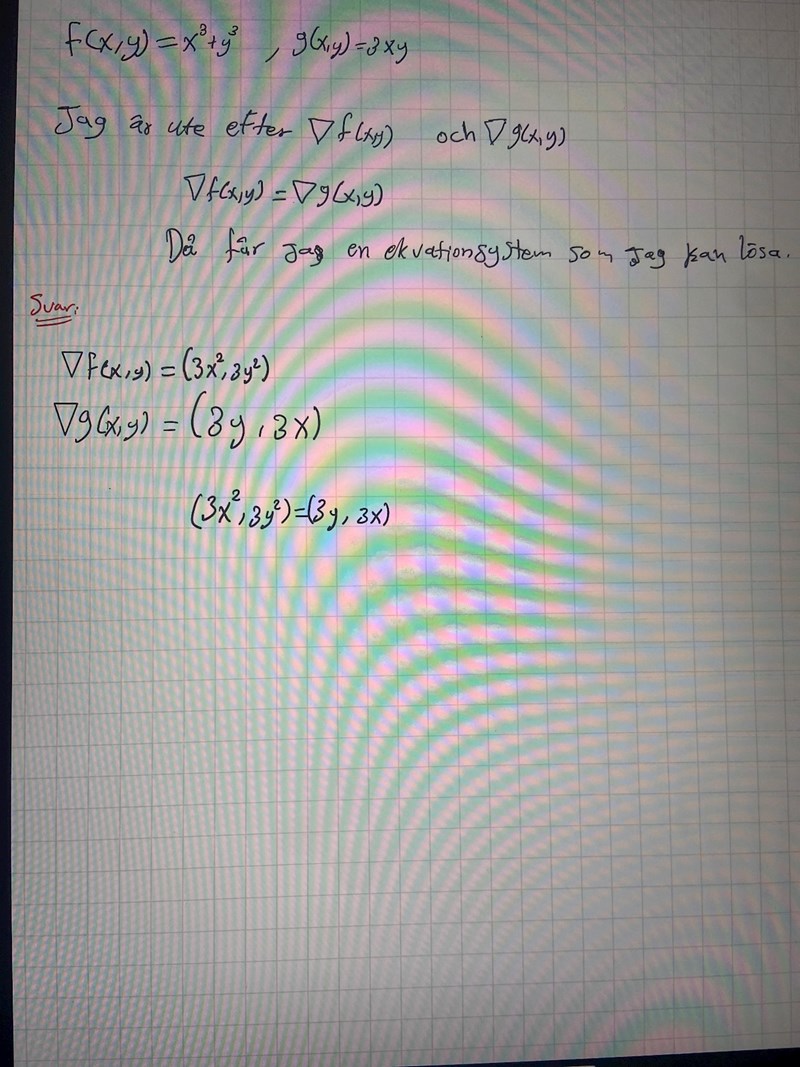 f(x,y) = x³+y³ , g(x,y)=3xy
Jag är ute efter ∇f(x,y) och ∇g(x,y)
∇f(x,y) = ∇g(x,y)
Då får jag en ekvationsystem som jag kan lösa.
Svar:
∇f(x,y) = (3x², 3y²)
∇g(x,y) = (3y, 3x)
(3x², 3y²)=(3y, 3x)